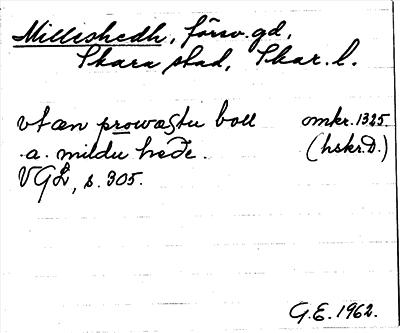 Millishedh, försv. gd,
Skara stad, Skar. l.
vtæn prowæstu boll omkr. 1325.
a. mildu heðe. (hskr. D.)
VGL, s. 305.
G.E. 1962.